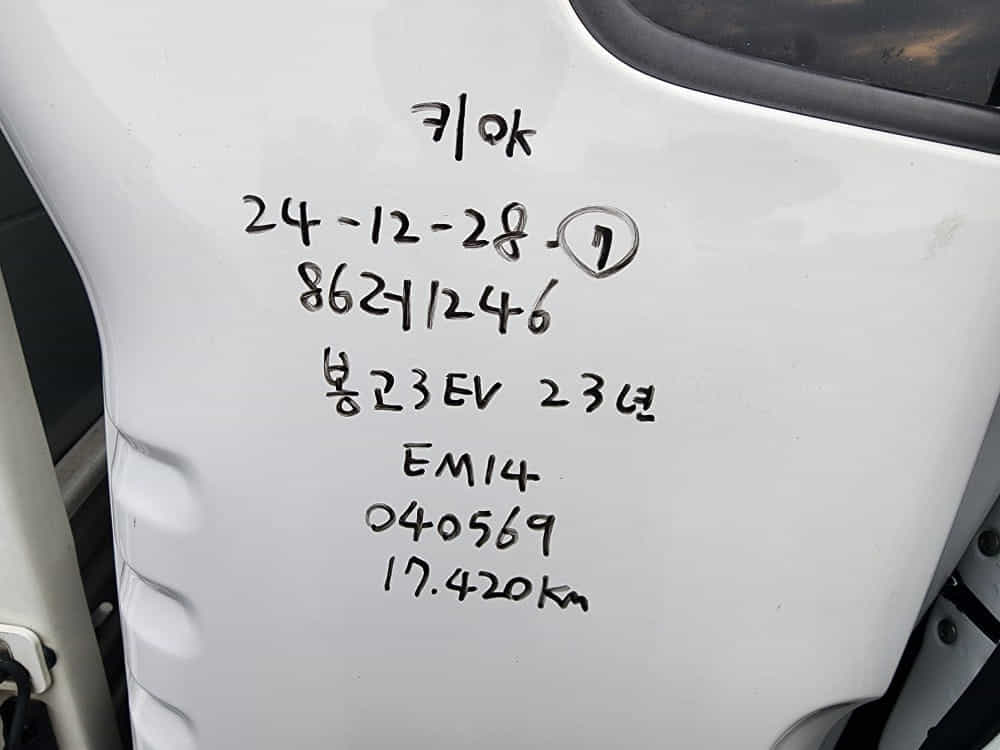 키 OK
24-12-28. ⑦
86러1246
봉고3EV 23년
EM14
040569
17.420Km